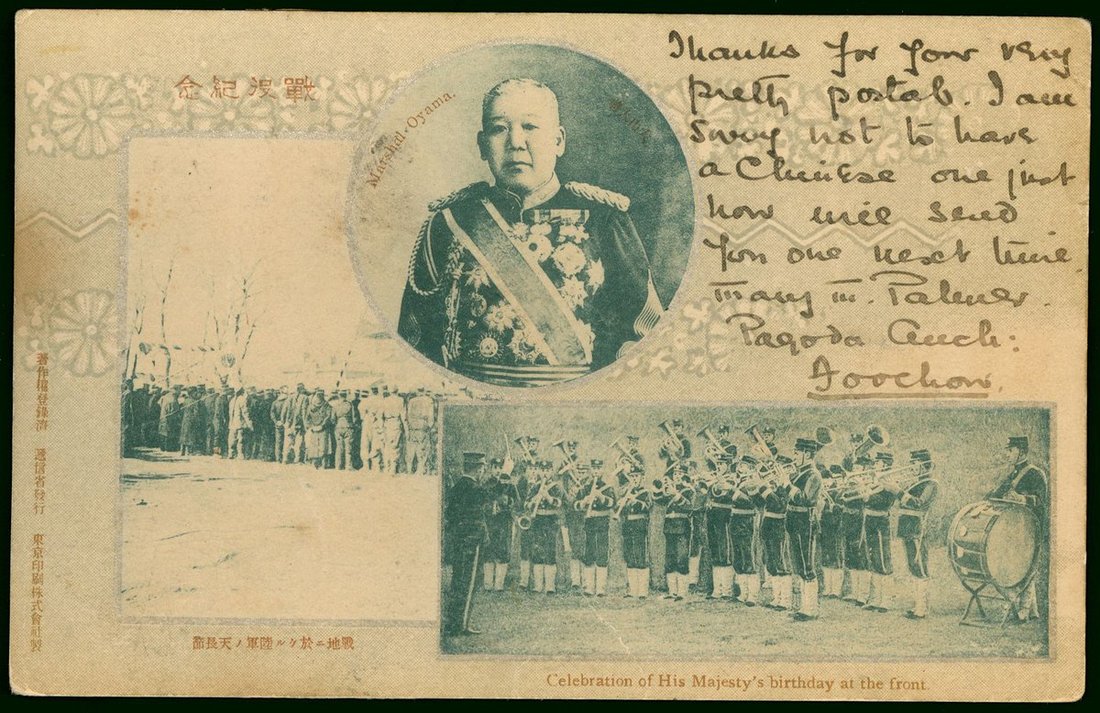 戰役紀念
Marshal Oyama.
Thanks for your very
pretty postal. I am
sorry not to have
a Chinese one just
now will send
you one next time.
Mary M. Palmer.
Pagoda Anch:
Foochow.
著作權登錄濟 遞信省發行 東京印刷株式會社製
戰地ニ於ケル陸軍ノ天長節
Celebration of His Majesty's birthday at the front.